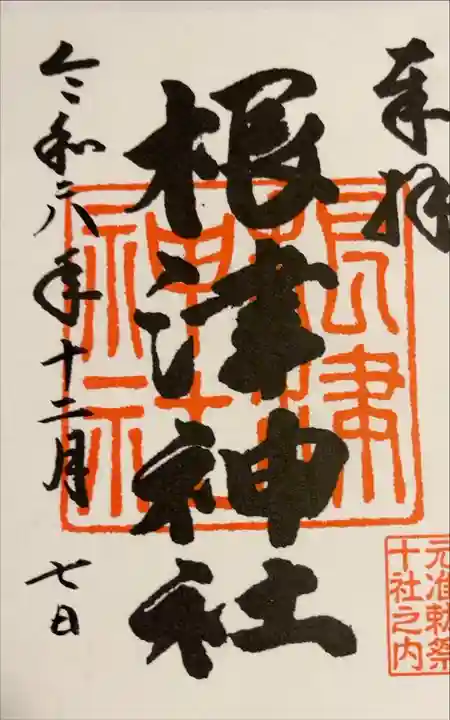 奉拝
根津神社
根津神社
元准勅祭
十社之内
令和六年十二月七日